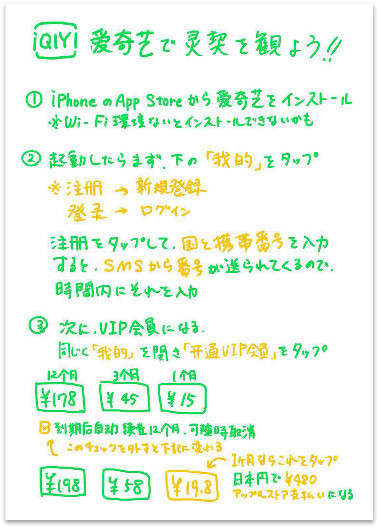 iQIY 爱奇艺で灵契を観よう!!
① iPhoneのApp Storeから爱奇艺をインストール
※Wi-Fi環境ないとインストールできないかも
② 起動したらまず、下の「我的」をタップ
※注册 → 新規登録
登录 → ログイン
注册をタップして、国と携帯番号を入力
すると、SMSから番号が送られてくるので、
時間内にそれを入力
③ 次に、VIP会員になる。
同じく「我的」を開き「开通VIP会员」をタップ
12个月 3个月 1个月
¥178 ¥45 ¥15
☑到期后自动续费12个月,可随時取消
このチェックを外すと下記に変わる
1ヶ月ならこれをタップ
¥198 ¥58 ¥19.8 日本円で¥480
アップルストア支払いになる